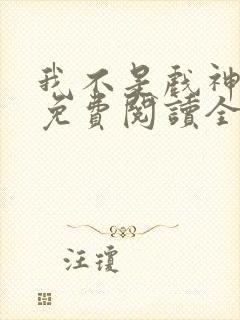 我不是戲神
免費閱讀全
汪瓊